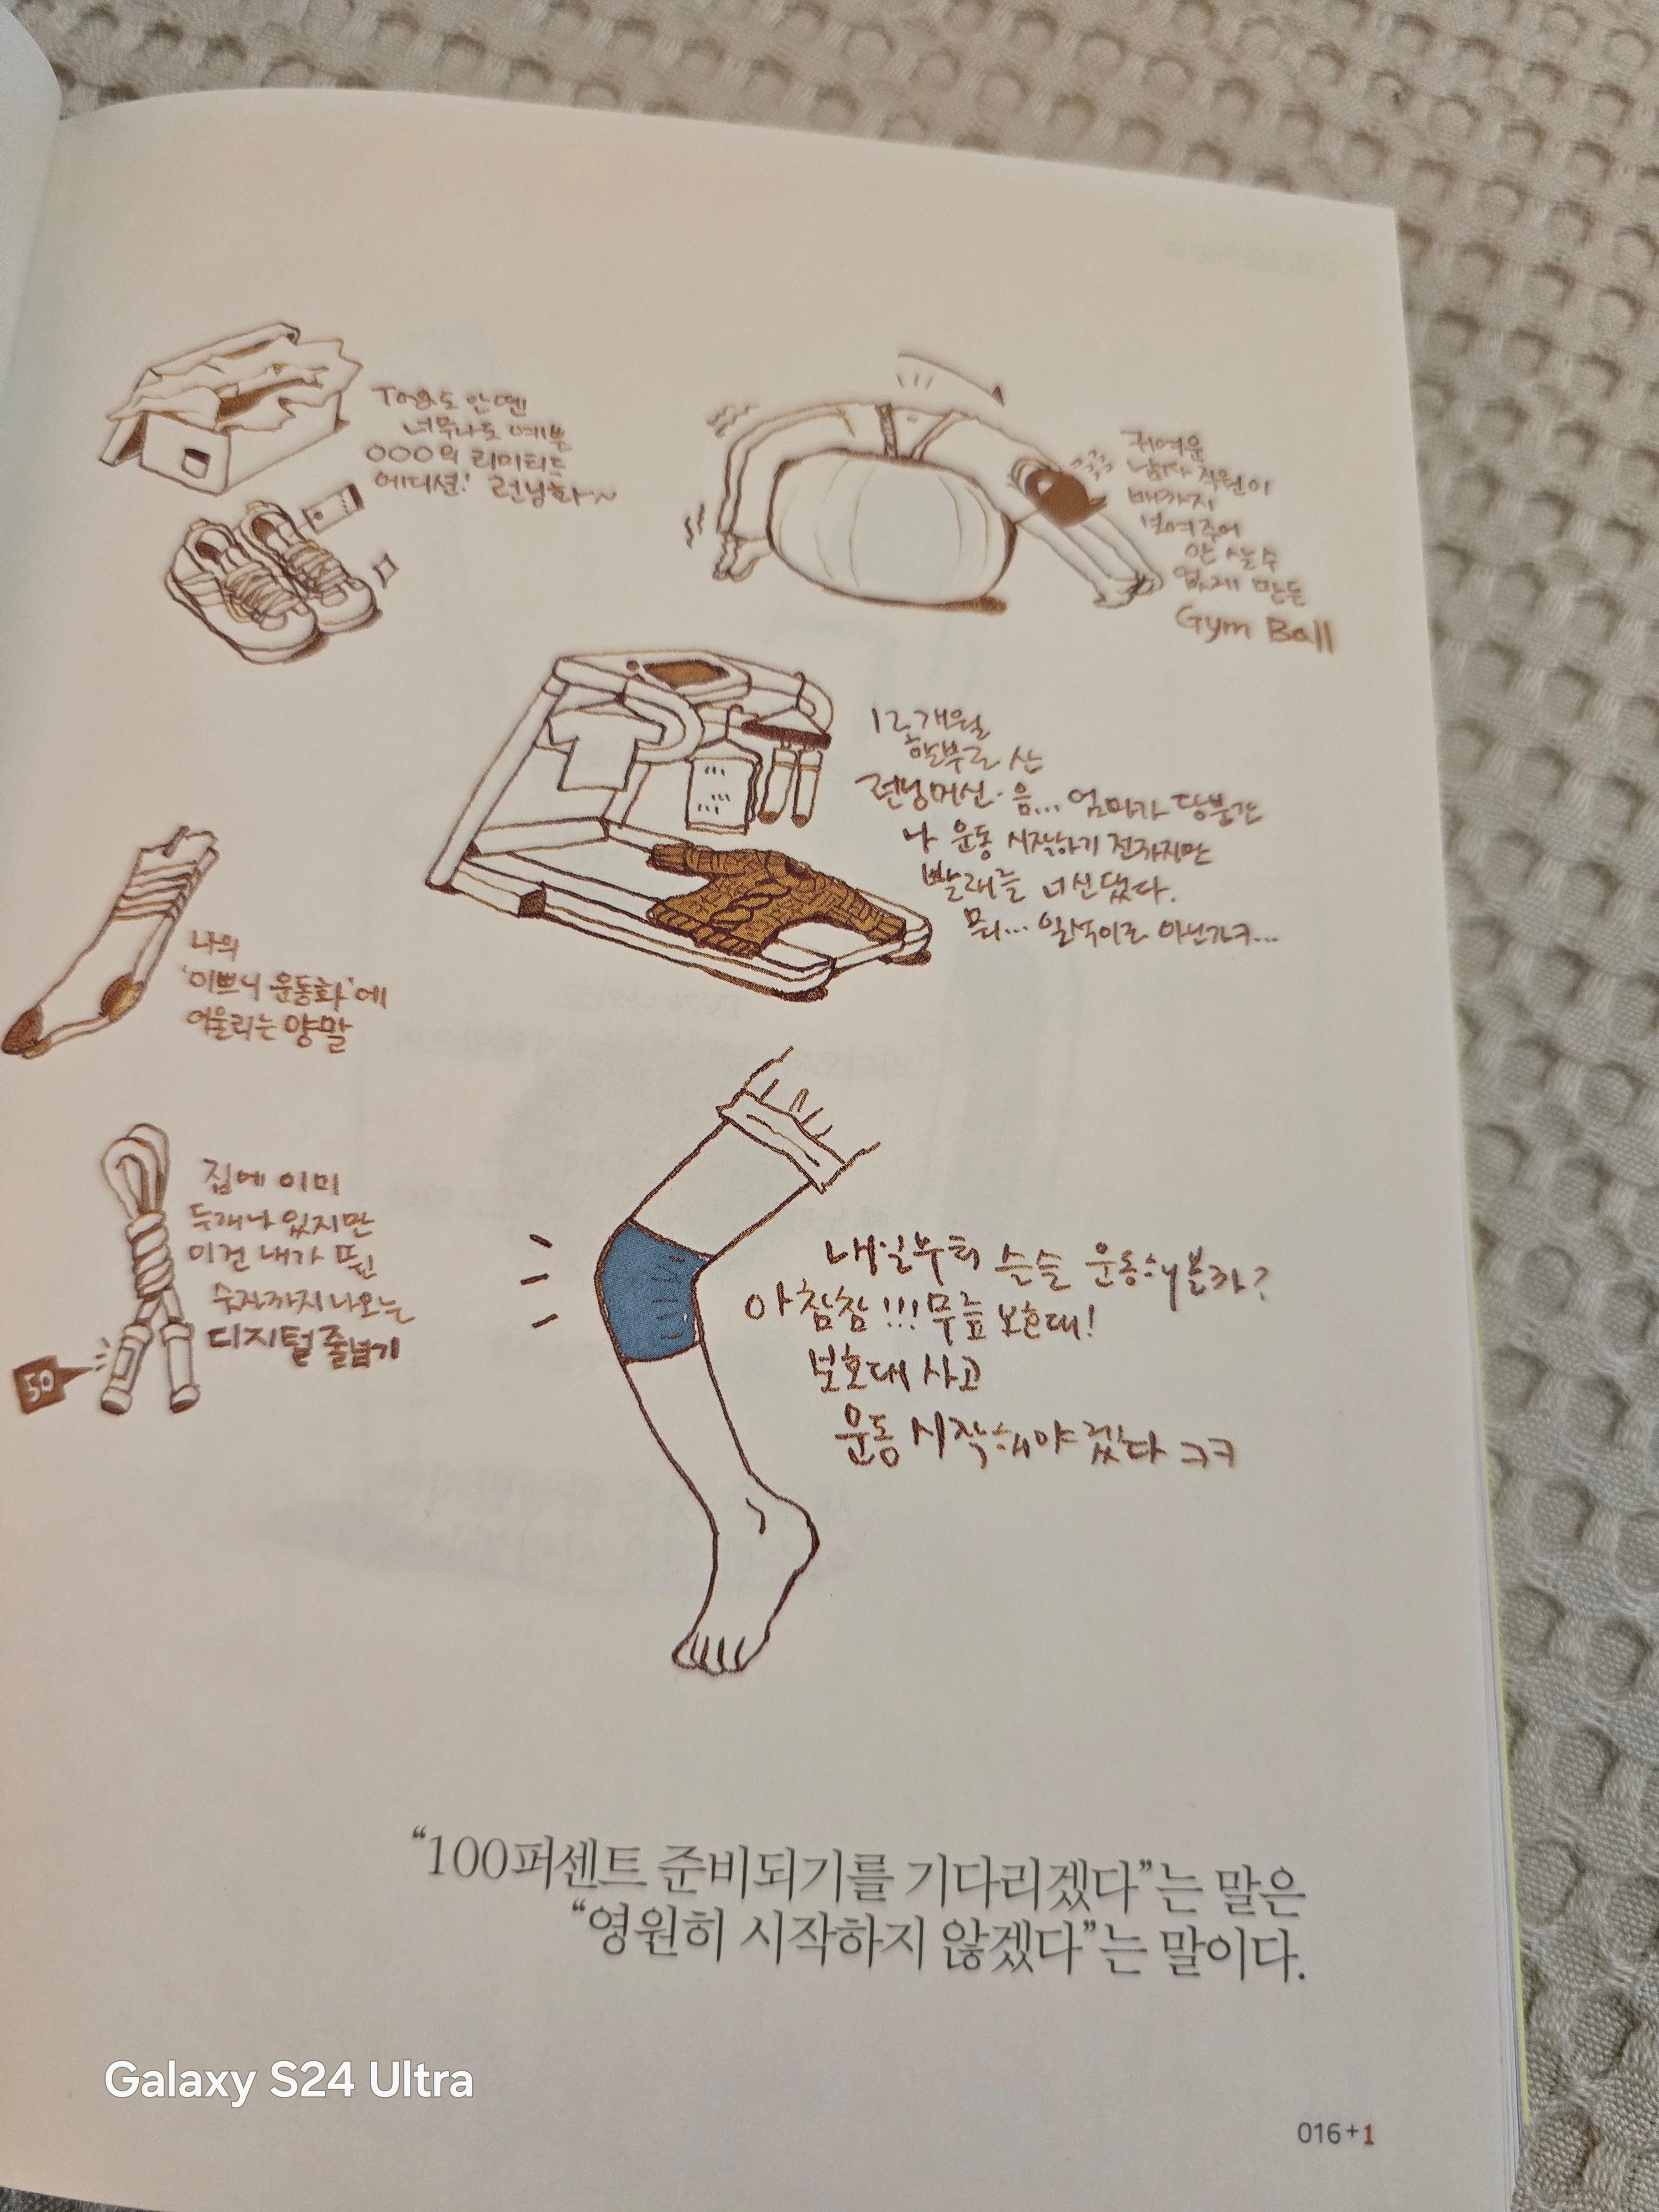 Tag도 안 뗀
너무나도 예쁜
OOO의 리미티드
에디션! 런닝화~
귀여운
남자 직원이
배까지
보여주어
안 살 수
없게 만든
Gym Ball
12개월
할부로 산
런닝머신. 음... 엄마가 당분간
나 운동 시작하기 전까지만
빨래를 너신댔다.
뭐... 일석이조 아닌가ㅋ...
나의
'이쁘니 운동화'에
어울리는 양말
집에 이미
두개나 있지만
이건 내가 뛴
숫자까지 나오는
디지털 줄넘기
50
내일부터 슬슬 운동해볼까?
아 참참!!! 무릎 보호대!
보호대 사고
운동 시작해야겠다 ㅋㅋ
“100퍼센트 준비되기를 기다리겠다”는 말은
“영원히 시작하지 않겠다”는 말이다.
Galaxy S24 Ultra
016+1